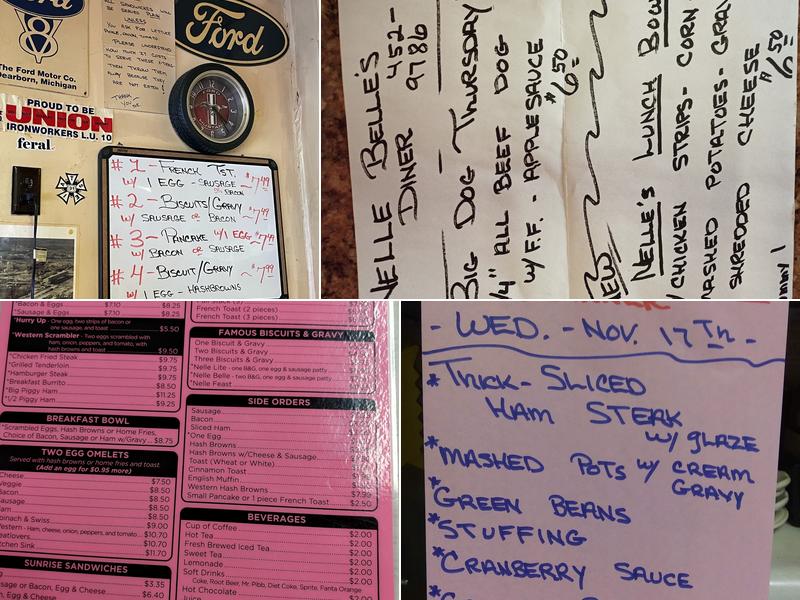 The Ford Motor Co.
Dearborn, Michigan
ALL SANDWICHES WILL
BE SERVED PLAIN
UNLESS
YOU ASK FOR LETTUCE
PICKLE, ONION, TOMATO.
PLEASE UNDERSTAND
HOW MUCH IT COSTS
TO SERVE THESE ITEMS
THEN THROW THEM
AWAY BECAUSE THEY
ARE NOT EATEN!
THANK
YOU
Ford
PROUD TO BE
UNION
IRONWORKERS L.U. 10
feral.
#1 - FRENCH TST.
W/ 1 EGG - SAUSAGE OR BACON ~ $7.49
#2 - BISCUITS/GRAVY
W/ SAUSAGE OR BACON ~ $7.99
#3 - PANCAKE W/1 EGG ~ $7.49
W/ BACON OR SAUSAGE
#4 - BISCUIT/GRAVY ~ $7.99
W/ 1 EGG - HASHBROWNS
NELLE BELLE'S 452-
DINER 9786
BIG DOG THURSDAY
/4" ALL BEEF DOG
W/ F.F. - APPLESAUCE
$6.50
NEW
NELLE'S LUNCH BOW
/ CHICKEN STRIPS - CORN
MASHED POTATOES - GRAV
SHREDDED CHEESE
$6.50
*Bacon & Eggs $7.10 $8.25
*Sausage & Eggs $7.10 $8.25
*Hurry Up - One egg, two strips of bacon or
one sausage, and toast $5.50
*Western Scrambler - Two eggs scrambled with
ham, onion, peppers, and tomato, with
hash browns and toast $9.50
*Chicken Fried Steak $9.75
*Grilled Tenderloin $9.75
*Hamburger Steak $9.75
*Breakfast Burrito $8.50
*Big Piggy Ham $11.25
*1/2 Piggy Ham $9.25
BREAKFAST BOWL
*Scrambled Eggs, Hash Browns or Home Fries,
Choice of Bacon, Sausage or Ham w/Gravy $8.75
TWO EGG OMELETS
Served with hash browns or home fries and toast.
(Add an egg for $0.95 more)
Cheese $7.50
Veggie $8.50
Bacon $8.50
Sausage $8.50
Ham $8.50
pinach & Swiss $9.00
estern - Ham, cheese, onion, peppers, and tomato $10.70
eatlovers $10.70
tchen Sink $11.70
SUNRISE SANDWICHES
$3.35
sage or Bacon, Egg & Cheese $6.40
n, Egg & Cheese
French Toast (2 pieces)
French Toast (3 pieces)
FAMOUS BISCUITS & GRAVY
One Biscuit & Gravy
Two Biscuits & Gravy
Three Biscuits & Gravy
*Nelle Lite - one B&G, one egg & sausage patty
*Nelle Belle - two B&G, one egg & sausage patty
*Nelle Feast
SIDE ORDERS
Sausage
Bacon
Sliced Ham
*One Egg
Hash Browns
Hash Browns w/Cheese & Sausage
Toast (Wheat or White)
Cinnamon Toast
English Muffin
Western Hash Browns
Small Pancake or 1 piece French Toast $2.50
BEVERAGES
Cup of Coffee $2.00
Hot Tea $2.00
Fresh Brewed Iced Tea $2.00
Sweet Tea $2.00
Lemonade $2.00
Soft Drinks $2.00
Coke, Root Beer, Mr. Pibb, Diet Coke, Sprite, Fanta Orange
Hot Chocolate $2.00
Juice
- WED. - NOV. 17TH -
*THICK-SLICED
HAM STEAK
W/ GLAZE
*MASHED POTS W/ CREAM
GRAVY
*GREEN BEANS
*STUFFING
*CRANBERRY SAUCE